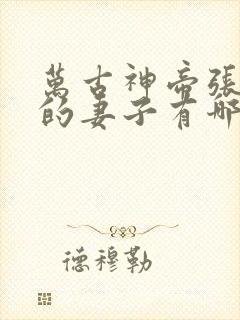 萬古神帝張
的妻子有哪
德穆勒